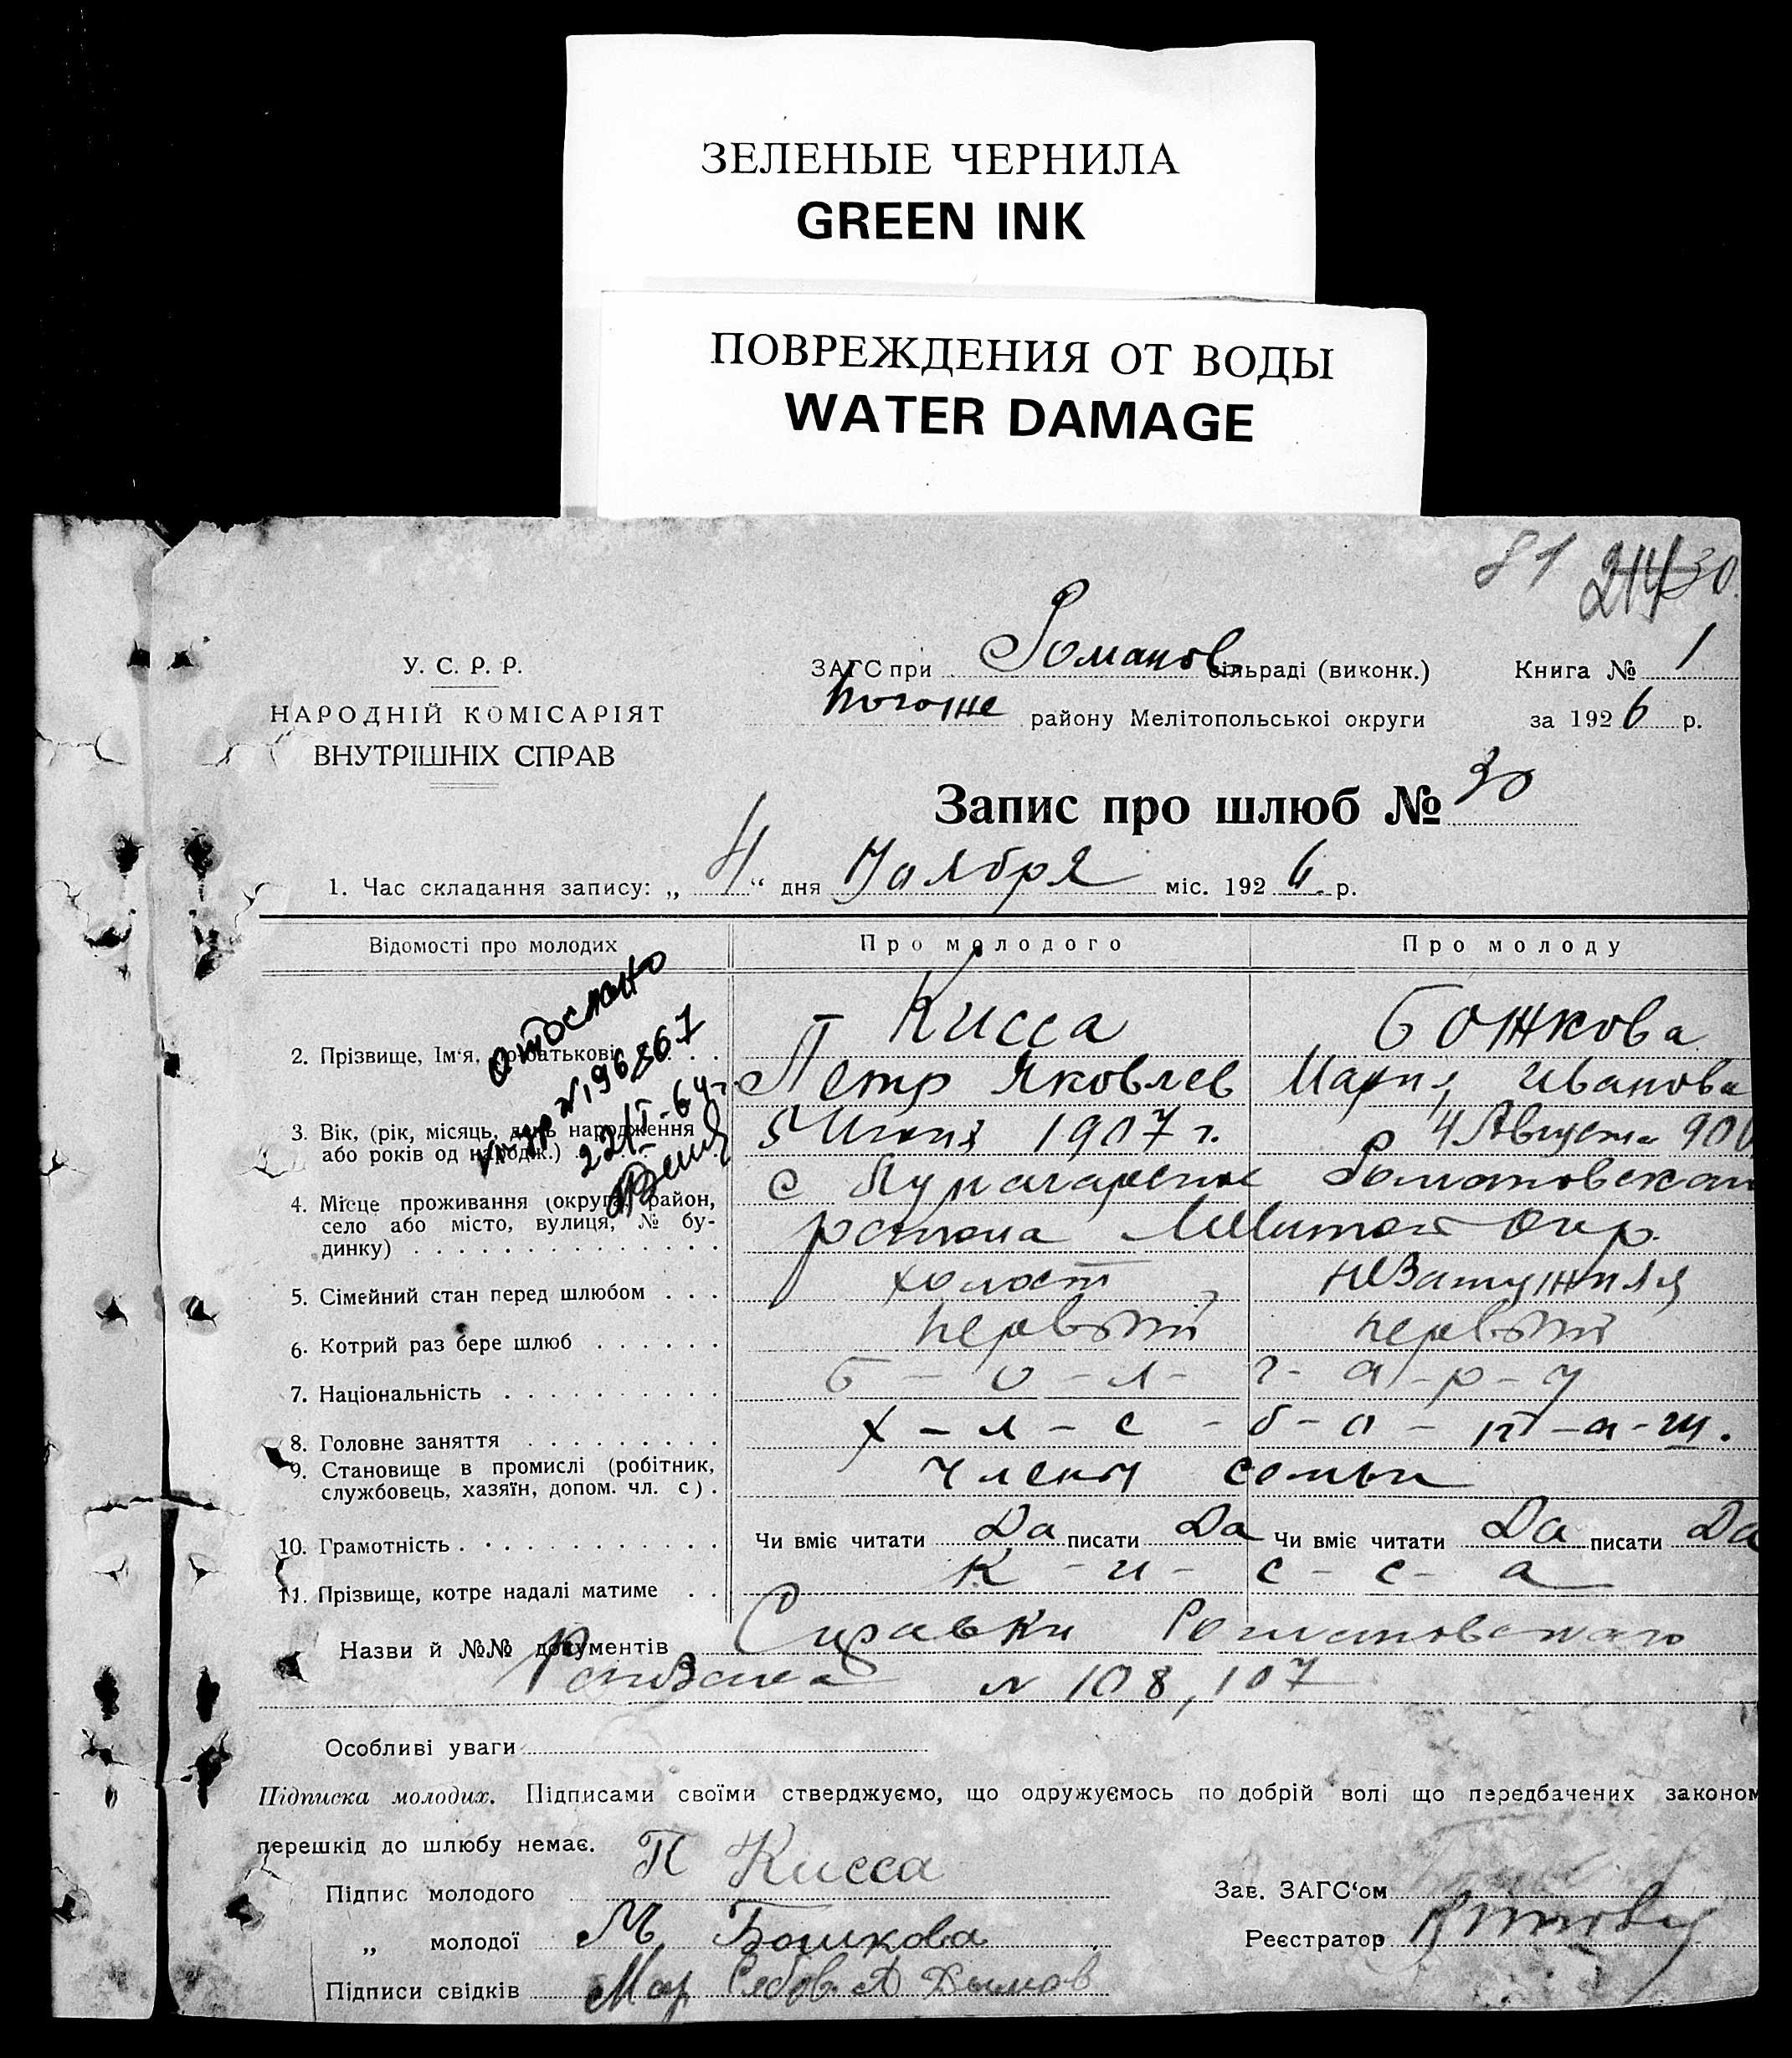 ЗЕЛЕНЫЕ ЧЕРНИЛА
GREEN INK
ПОВРЕЖДЕНИЯ ОТ ВОДЫ
WATER DAMAGE
81 244 30
У. С. Р. Р.
НАРОДНІЙ КОМІСАРІЯТ
ВНУТРІШНІХ СПРАВ
ЗАГС при Романов. сільраді (виконк.) Книга № 1
району Мелітопольської округи за 1926 р.
Запис про шлюб № 30
1. Час складання запису: „ 4 “ дня Ноября міс. 1926 р.
Відомості про молодих Про молодого Про молоду
Отослано
22/I-64 г.
2. Прізвище, Ім'я, по батькові . . . Кисса Божкова
Петр Яковлев Мария Иванова
3. Вік, (рік, місяць, день народження або років од народж.) 5 Июня 1907 г. 4 Августа 90
4. Місце проживання (округа, район, село або місто, вулиця, № будинку) с Романовской
района Мелитоп Окр.
5. Сімейний стан перед шлюбом . . . холост незамужняя
6. Котрий раз бере шлюб . . . . . . первый первый
7. Національність . . . . . . . . . . б - о - л - г - а - р - ы
8. Головне заняття . . . . . . . . . х - л - е - б - о - п - а - ш.
9. Становище в промислі (робітник, службовець, хазяїн, допом. чл. с) . члены семьи
10. Грамотність . . . . . . . . . . . . Чи вміє читати Да писати Да Чи вміє читати Да писати Да
11. Прізвище, котре надалі матиме . . К - и - с - с - а
Назви й №№ документів Справки Романовского
№ 108, 107
Особливі уваги
Підписка молодих. Підписами своїми стверджуємо, що одружуємось по добрій волі що передбачених законом
перешкід до шлюбу немає.
Підпис молодого П Кисса Зав. ЗАГС'ом
„ молодої М Бошкова Реєстратор
Підписи свідків Мар Дымов